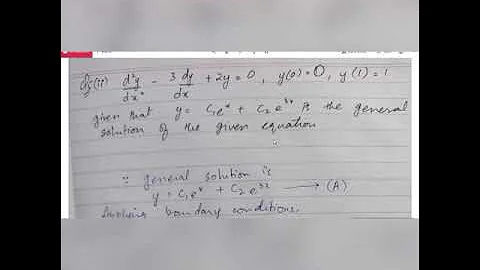 Q5(ii) d²y/dx² - 3 dy/dx + 2y = 0, y(0) = 0, y(1) = 1
given that y = C₁eˣ + C₂e²ˣ is the general
solution of the given equation
∵ general solution is
y = C₁eˣ + C₂e²ˣ → (A)
boundary conditions.